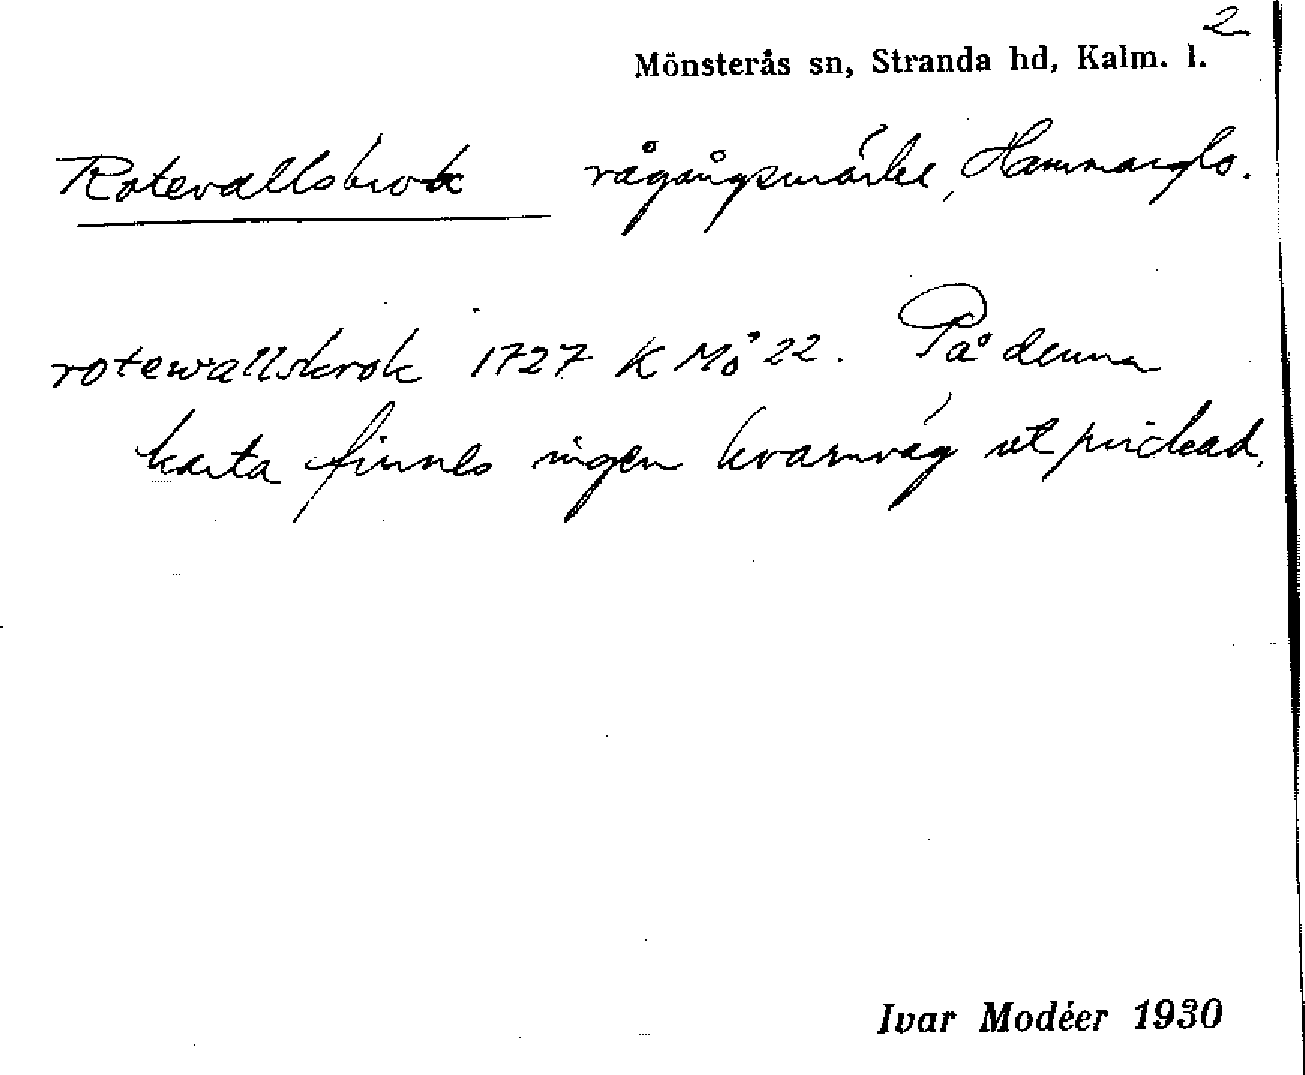 2
Mönsterås sn, Stranda hd, Kalm. l.
Rotevallskrok rågångsmärke, Hammarglo.
rotewallskrok 1727 K Mö 22. På denna
karta finnes ingen kvarnväg utprickad.
Ivar Modéer 1930